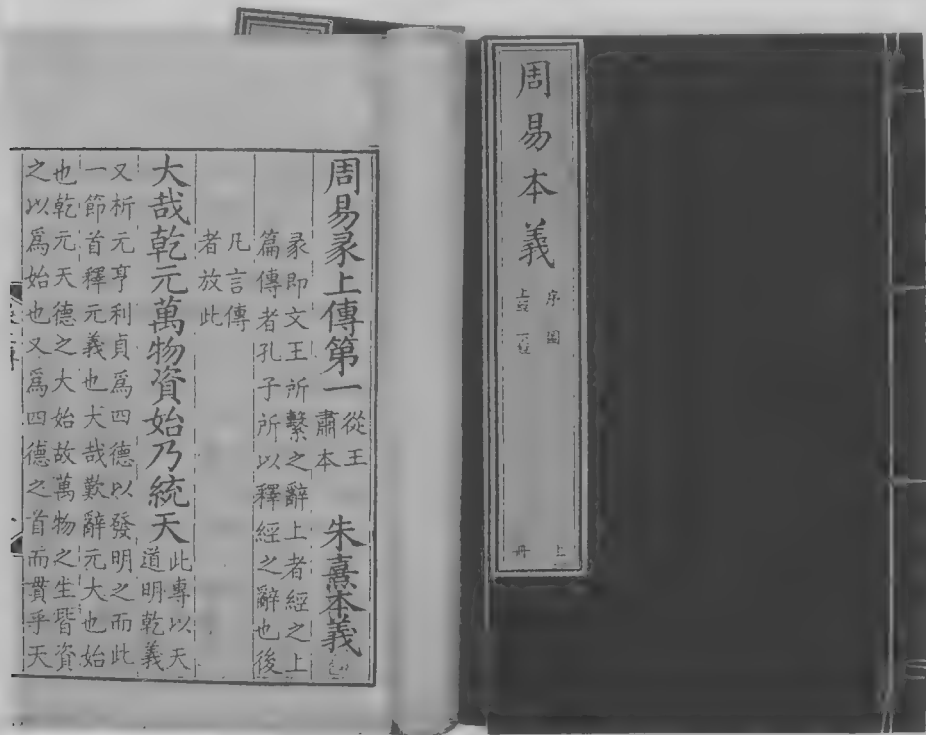 周易本義
序圖
上經
上冊
周易彖上傳第一
從王
肅本
朱熹本義
彖即文王所繫之辭上者經之上
篇傳者孔子所以釋經之辭也後
凡言傳
者放此
大哉乾元萬物資始乃統天
此專以天
道明乾義
又析元亨利貞爲四德以發明之而此
一節首釋元義也大哉歎辭元大也始
也乾元天德之大始故萬物之生皆資
之以爲始也又爲四德之首而貫乎天